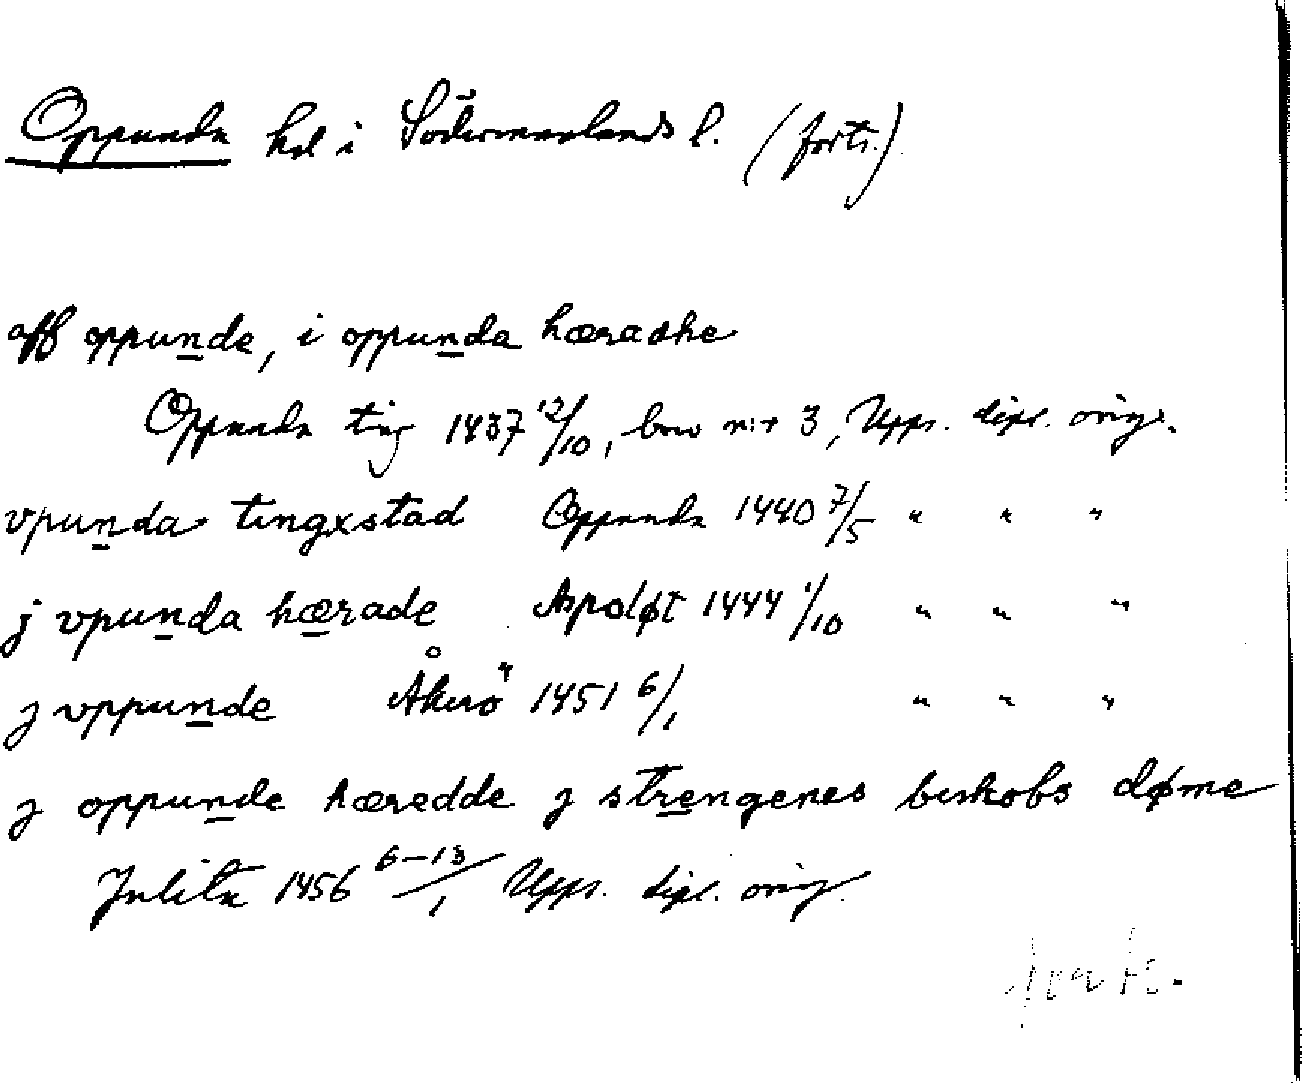 Oppunda hd i Södermanlands l. (forts.)
aff oppunde, i oppunda hæradhe
Oppunda ting 1437 12/10, brev nr 3, Upps. dipl. orig.
vpunda tingxstad Oppunda 1440 7/5 " " "
j vpunda hærade Aspoløt 1444 1/10 " " "
j vppunde Åkerö 1451 6/1 " " "
j oppunde hæredde j strengenes biskobs døme
Julita 1456 6–13/1 Upps. dipl. orig.